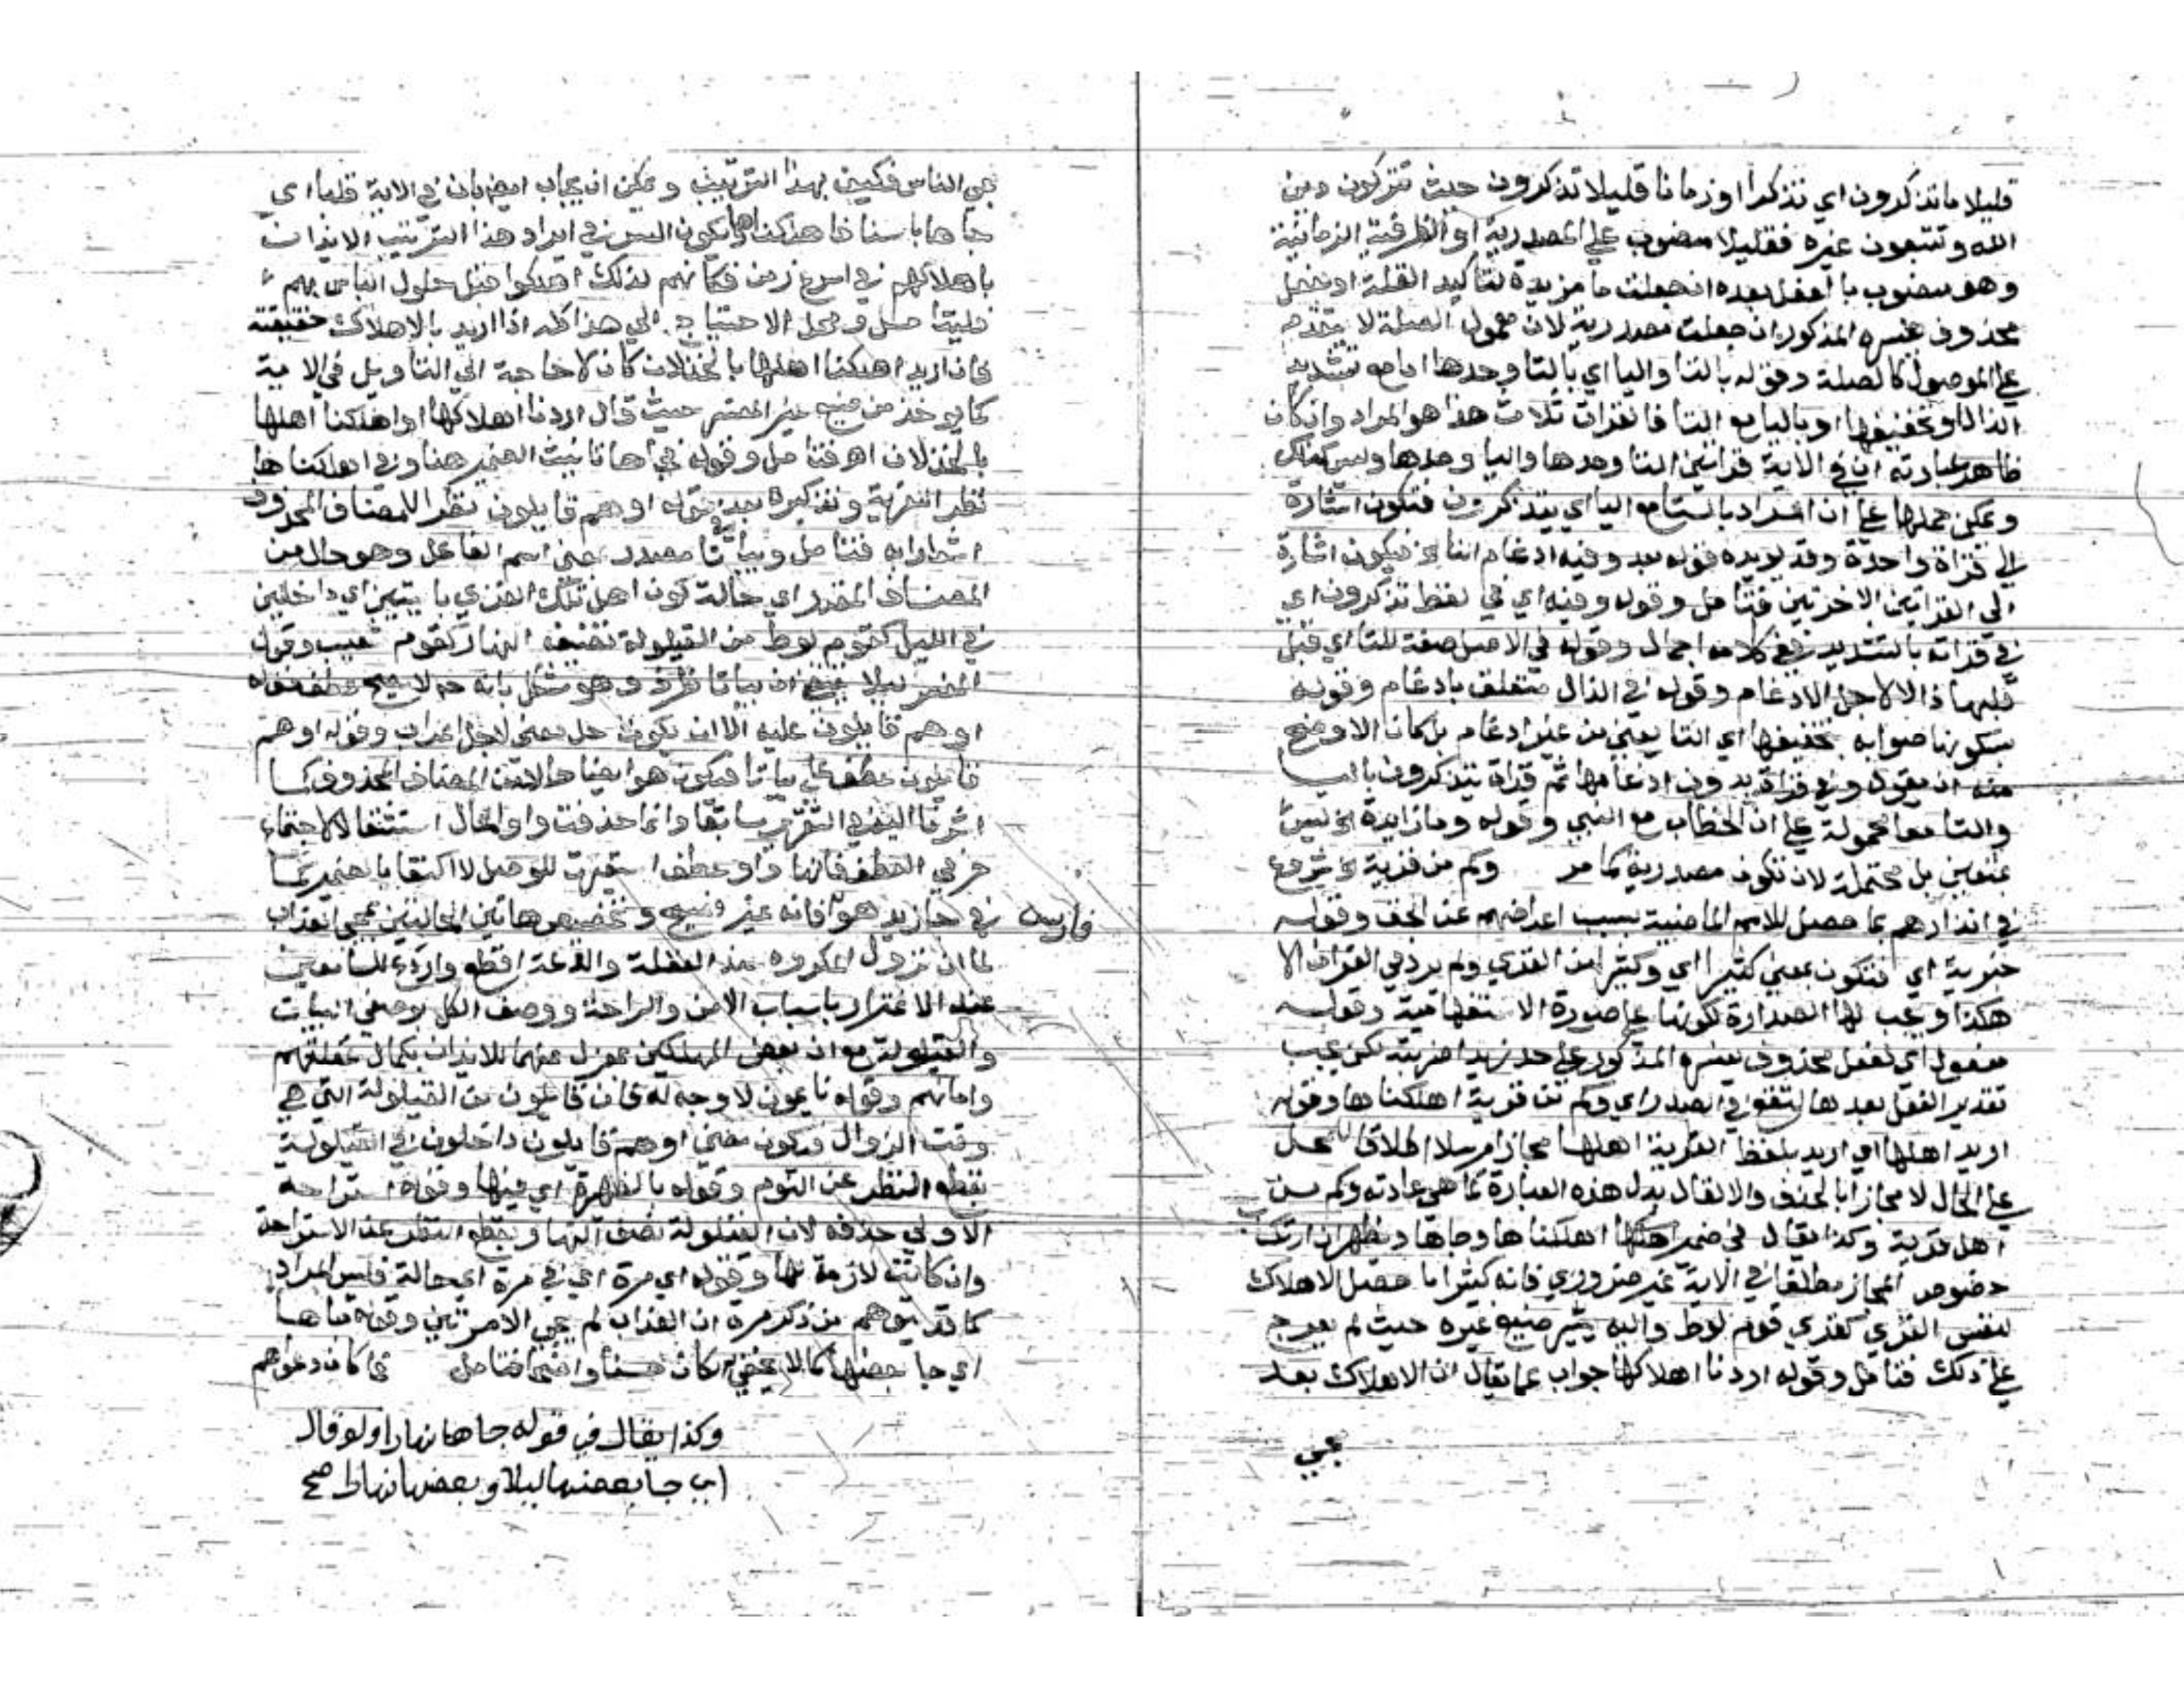 قليلا ما تذكرون اي تذكرا او زمانا قليلا تذكرون حيث تتركون دين
الله وتتبعون غيره فقليلا منصوب على المصدرية او الظرفية الزمانية
وهو منصوب بالفعل بعده ان جعلت ما مزيدة لتاكيد القلة او بفعل
محذوف يفسره المذكور ان جعلت مصدرية لان معمول الصلة لا يتقدم
على الموصول كالصلة وقوله بالتا واليا اي بالتا وحدها اما مع تشديد
الذال او تخفيفها او باليا مع التا فالقرات ثلاث هذا هو المراد وان كان
ظاهر عبارته ان في الاية قراتين التا وحدها واليا وحدها وليس كذلك
ويمكن حملها على ان المراد بالتا مع اليا اي يتذكرون فتكون اشارة
الي قراة واحدة وقد يويده قوله بعد وفيه ادغام التا الخ فيكون اشارة
الي القراتين الاخرتين فتامل وقوله وفيه اي في لفظ تذكرون اي
في قراته بالتشديد ففي كلامه اجمال وقوله في الاصل صفة للتا اي قبل
قلبها ذالا لاجل الادغام وقوله في الذال متعلق بادغام وقوله
بسكونها صوابه بتخفيفها اي التا يعني من غير ادغام بل كان الاوضح
منه ان يقول وفي قراة بدون ادغامها ثم قراة يتذكرون باليا
والتا معا محمولة على ان الخطاب مع النبي وقوله وما زايدة الخ ليس
بمتعين بل محتملة لان تكون مصدرية كما مر وكم من قرية الخ شروع
في انذارهم بما حصل للامم الماضية بسبب اعراضهم عن الحق وقوله
خبرية اي فتكون بمعني كثيرا اي وكثيرا من القري ولم يرد في القران الا
هكذا ويجب لها الصدارة لكونها على صورة الاستفهامية وقوله
مفعول اي لفعل محذوف يفسره المذكور على حد زيدا ضربته لكن يجب
تقدير الفعل بعدها لتقع في الصدر اي وكم من قرية اهلكناها وقوله
اريد اهلها اي اريد بلفظ القرية اهلها مجازا مرسلا اطلاقا للمحل
على الحال لا مجازا بالحذف والا لقال بدل هذه العبارة كما هي عادته وكم من
اهل قرية وكذا يقال في ضمير اهلكناها وجاها ويظهر ان ارتكاب
خصوص المجاز مطلقا في الاية غير ضروري فانه كثيرا ما حصل الاهلاك
لنفس القري كقري قوم لوط واليه يشير صنيع غيره حيث لم يعرج
على ذلك فتامل وقوله اردنا اهلاكها جواب عما يقال ان الاهلاك بعد
مجي
مجي الناس فكيف بهذا الترتيب ويمكن ان يجاب ايضا بان في الاية قلبا اي
جاها باسنا فاهلكناها ويكون السر في ايراد هذا الترتيب الايذان
باهلاكهم في اسرع زمن فكانهم لذلك اهلكوا قبل حلول الباس بهم
فليتامل ومحل الاحتياج الي هذا كله اذا اريد بالاهلاك حقيقته
فان اريد اهلكنا اهلها بالخذلان كان لا حاجة الي التاويل في الاية
كما يوخذ من صنيع غير المفسر حيث قال اردنا اهلاكها او اهلكنا اهلها
بالخذلان اه فتامل وقوله فجاها تانيث الضمير هنا وفي اهلكناها
نظرا للقرية وتذكيره بعد في قوله او هم قايلون نظرا للمضاف المحذوف
اشار اليه فتامل وبياتا مصدر بمعني اسم الفاعل وهو حال من
المضاف المقدر اي حالة كون اهل تلك القري بايتين اي داخلين
في الليل كقوم لوط من القيلولة نصف النهار كقوم شعيب وقول
المفسر ليلا يقتضي ان بياتا ظرف وهو مشكل بانه لا يصح عطف قوله
او هم قايلون عليه الا ان يكون حل معني لا حل اعراب وقوله او هم
قايلون عطف على بياتا فيكون هو ايضا حالا من المضاف المحذوف كما
اشرنا اليه في التقرير سابقا وانما حذفت واو الحال استثقالا لاجتماع
حرفي العطف فانها واو عطف استعيرت للوصل لا اكتفا بالضمير كما
في جا زيد هو فارس فانه غير فصيح وتخصيص هاتين الحالتين بمجي العذاب
لما ان نزول المكروه عند الغفلة والدعة افظع واردع للسامعين
عن الاغترار باسباب الامن والراحة ووصف الكل بوصفي البيات
والقيلولة مع ان بعض المهلكين بمعزل عنهما للايذان بكمال غفلتهم
وامانهم وقوله نايمون لا وجه له فان قايلون من القيلولة التي هي
وقت الزوال فيكون معني او هم قايلون داخلون في القيلولة
بقطع النظر عن النوم وقوله بالظهيرة اي فيها وقوله استراحة
الاولي حذفه لان القيلولة نصف النهار وبقطع النظر عن الاستراحة
وان كانت لازمة لها وقوله اي مرة اي في مرة اي حالة فليس المراد
كما قد يتوهم من ذكر مرة ان العذاب لم يجي الا مرتين وقوله جاها
اي جا بعضها كما لا يخفي لكان حسنا واضحا فتامل فما كان دعواهم
وكذا يقال في قوله جاها نهارا ولو قال
اي جا بعضها ليلا وبعضها نهارا صح